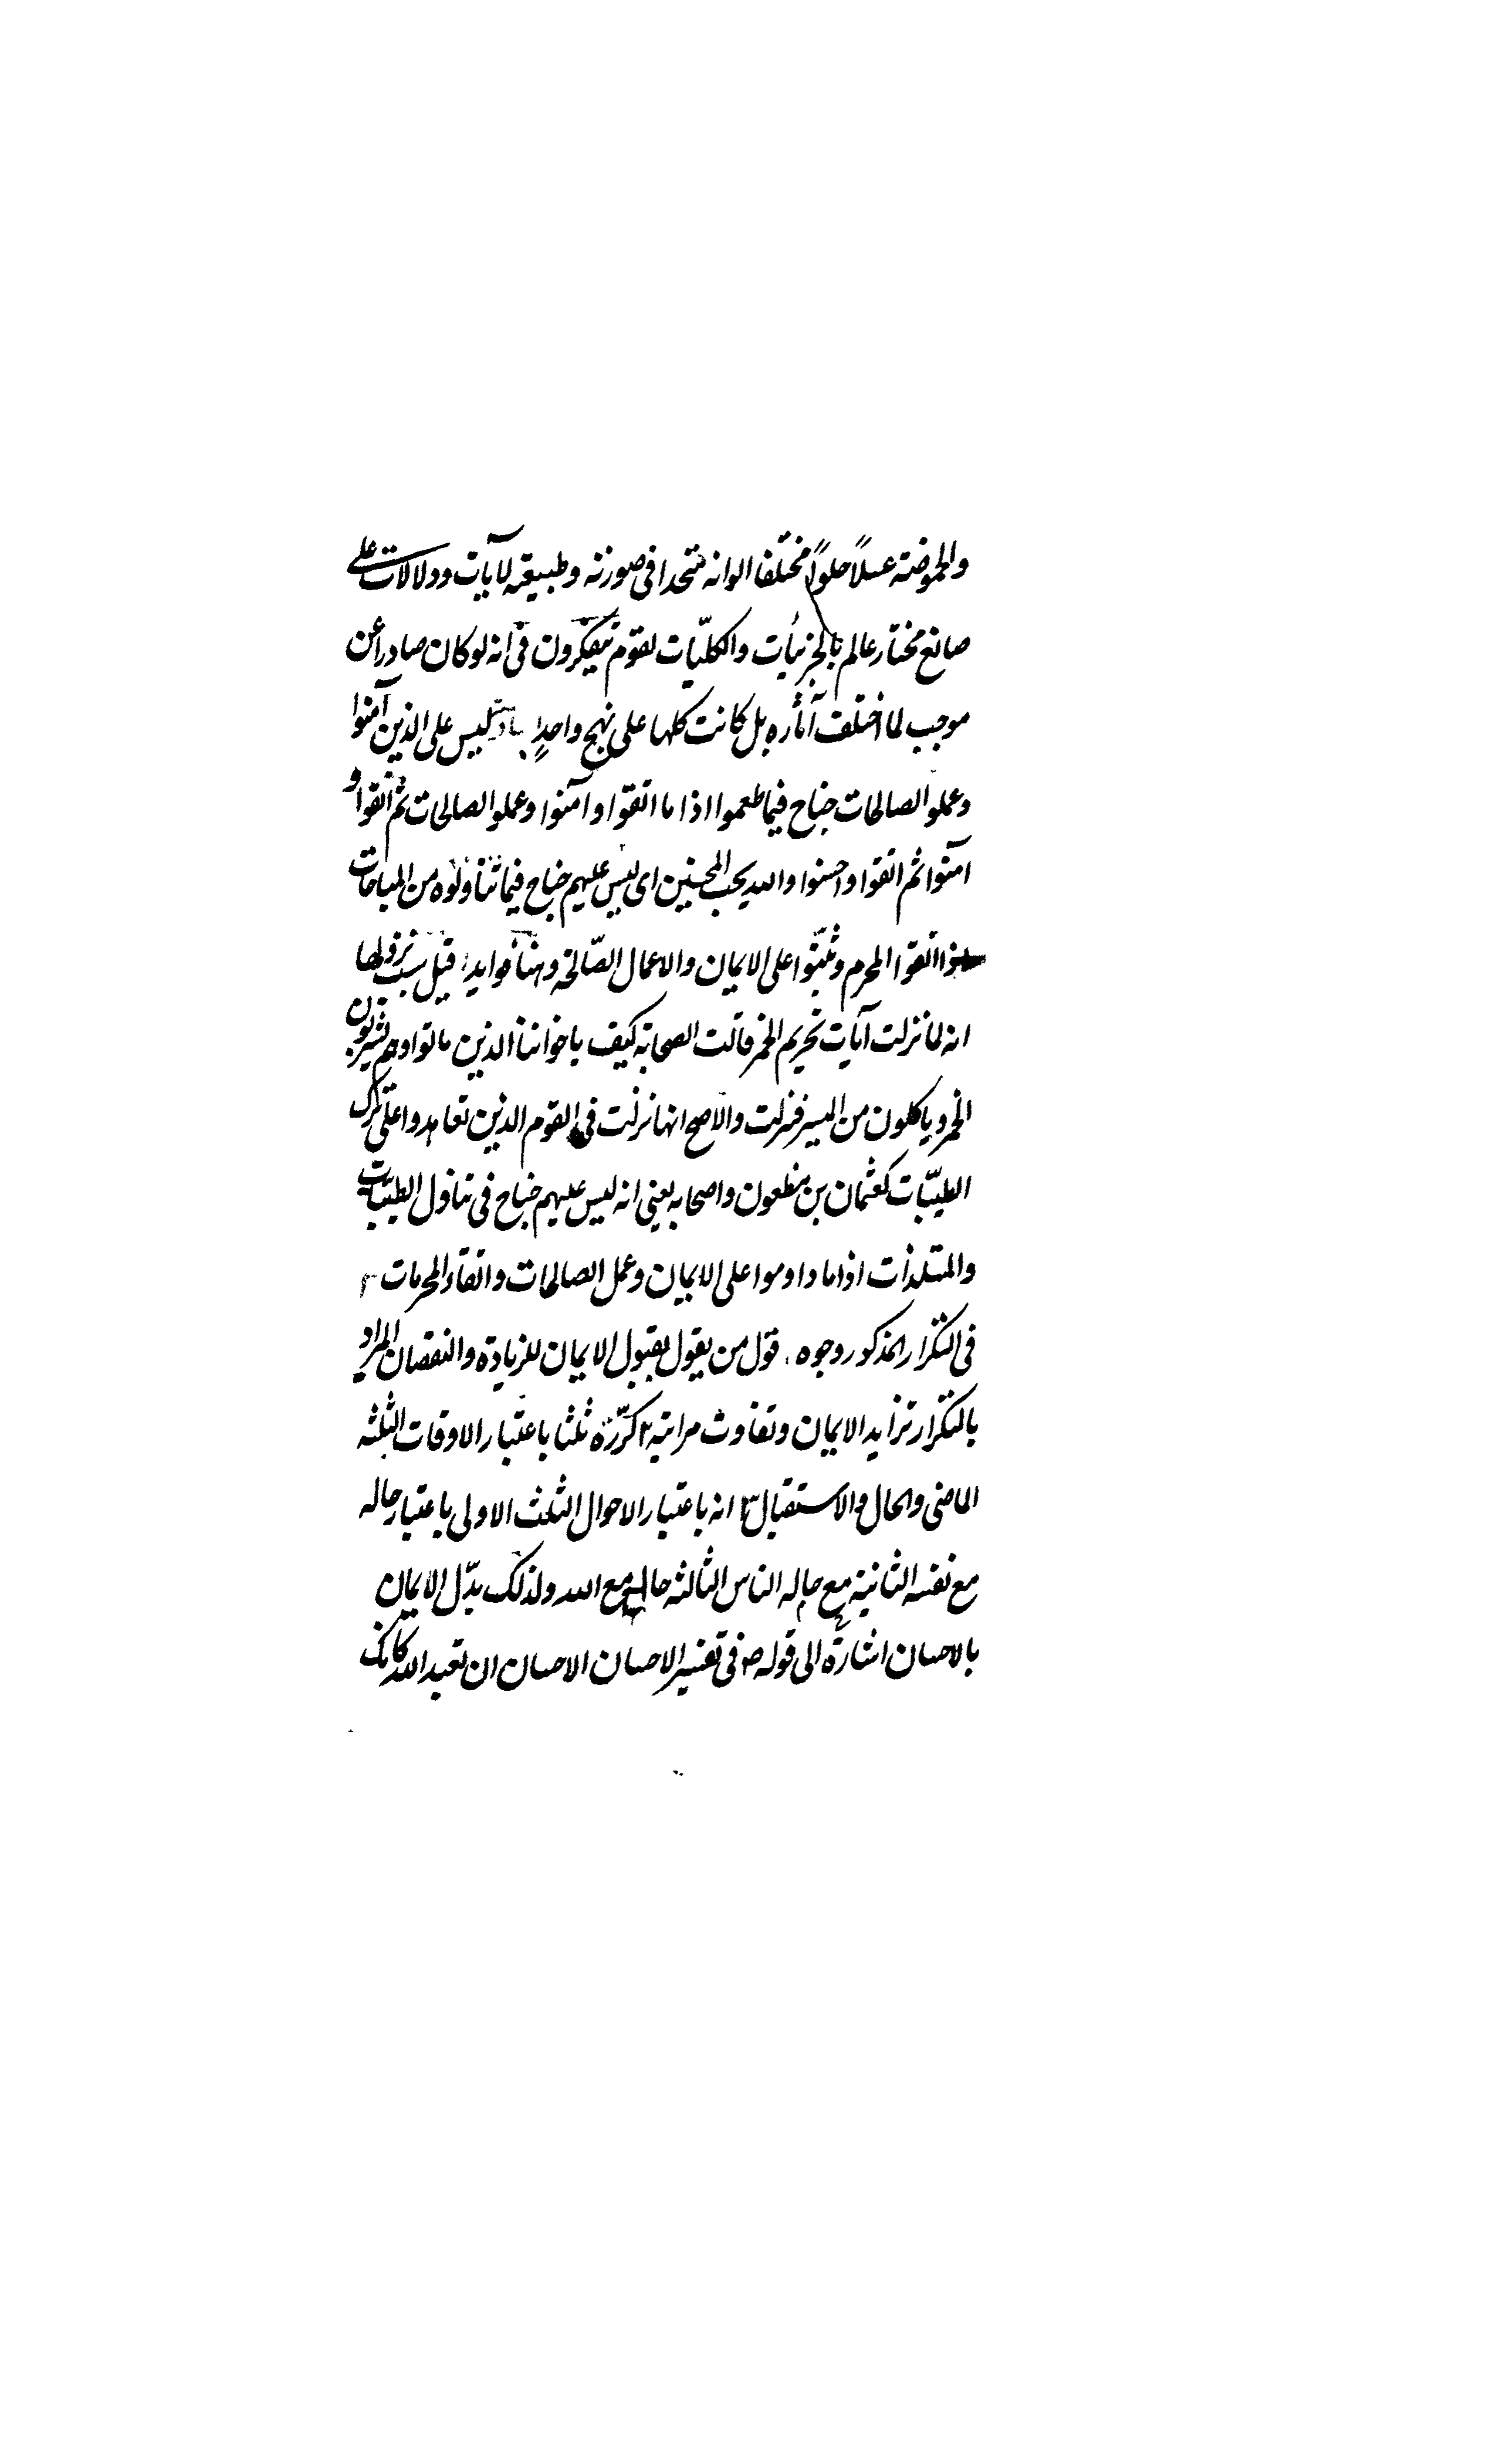 والحموضة عسلاً حلواً مختلفا الوانه متحدا فى صورته وطبيعته لآيات ودلالات على
صانع مختار عالم بالجزئيات والكليّات لقوم يتفكرون فى انه لو كان صادرا عن
موجب لما اختلف آثاره بل كانت كلها على نهج واحدٍ ليس على الذين آمنوا
وعملوا الصالحات جناح فيما طعموا اذا ما اتقوا وآمنوا وعملوا الصالحات ثم اتقوا و
آمنوا ثم اتقوا واحسنوا والله يحب المحسنين اى ليس عليهم جناح فيما تناولوه من المباحات
اتقوا المحرم وثبّتوا على الايمان والاعمال الصّالحة وهنا فوايد قيل سبب نزولها
انه لما نزلت آيات تحريم الخمر قالت الصحابة كيف باخواننا الذين ماتوا وهم يشربون
الخمر وياكلون من الميسر فنزلت والاصح انها نزلت فى القوم الذين تعاهدوا على ترك
الطيّبات كعثمان بن مظعون واصحابه يعنى انه ليس عليهم جناح فى تناول الطيّبات
والمتلذات اذا ما داوموا على الايمان وعمل الصالحات واتقاء المحرمات ٢
فى التكرار المذكور وجوه قول من يقول بقبول الايمان للزيادة والنقصان المراد
بالتكرار تزايد الايمان وتفاوت مراتبه ٢ كرّره ثلثا باعتبار الاوقات الثلثة
الماضى والحال والاستقبال ٣ انه باعتبار الاحوال الثلث الاولى باعتبار حاله
مع نفسه الثانية مع حاله الناس الثالثه حاله مع الله ولذلك بدّل الايمان
بالاحسان اشارة الى قوله ص فى تفسير الاحسان الاحسان ان تعبد الله كانك